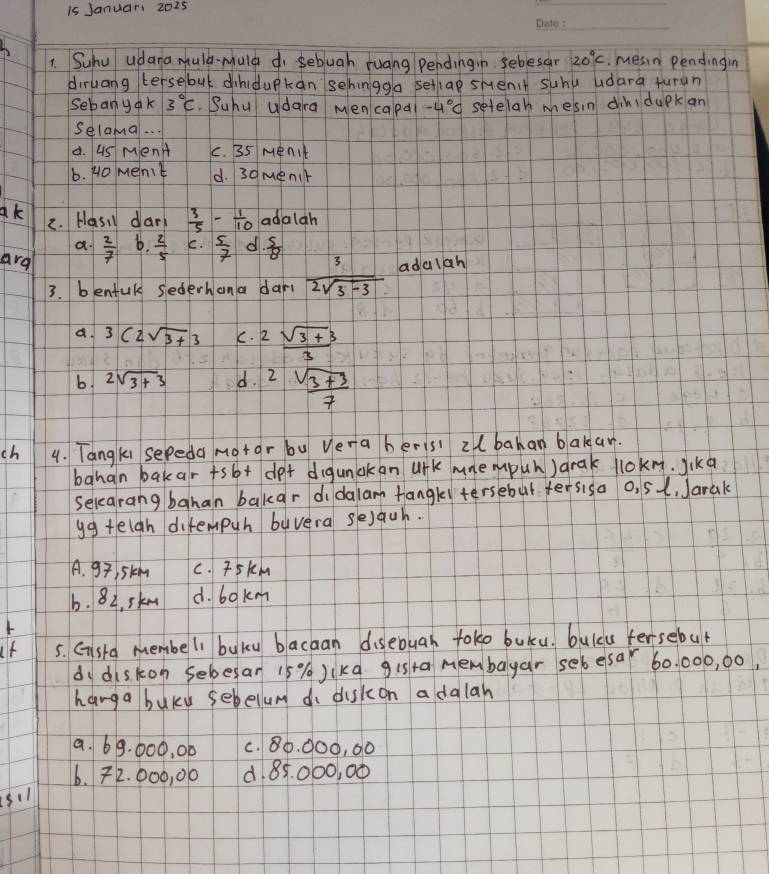 15 Januari 2025
Date :
1. Suhu udara mula-mula di sebuah ruang pendingin sebesar 20°C. mesin pendingin
diruang tersebut dihidupkan sehingga setiap 5menit suhu udara turun
sebanyak 3°C. Suhu udara mencapai -4°C setelah mesin dihidupkan
selama...
a. 45 menit c. 35 menit
b. 40 menit d. 30 menit
2. Hasil dari 3/5 - 1/10 adalah
a. 2/7 b. 2/5 c. 5/7 d. 5/8
3. bentuk sederhana dari 3/2√3-3 adalah
a. 3(2√3+3 c. 2√3+3/3
b. 2√3+3 d. 2√3+3/7
4. Tangki sepeda motor bu vera berisi 2l bahan bakar.
bahan bakar tsbt dpt digunakan utk mnempuh jarak 110km. jika
sekarang bahan bakar didalam tangki tersebut tersisa 0,5 l, Jarak
yg telah ditempuh buvera sejauh.
A. 97,5km c. 75km
b. 82,5km d. 60km
5. Gista membeli buku bacaan disebuah toko buku. buku tersebut
di diskon sebesar 15% jika gista membayar sebesar 60.000,00,
harga buku sebelum di diskon adalah
a. 69.000,00 c. 80.000,00
b. 72.000,00 d. 85.000,00